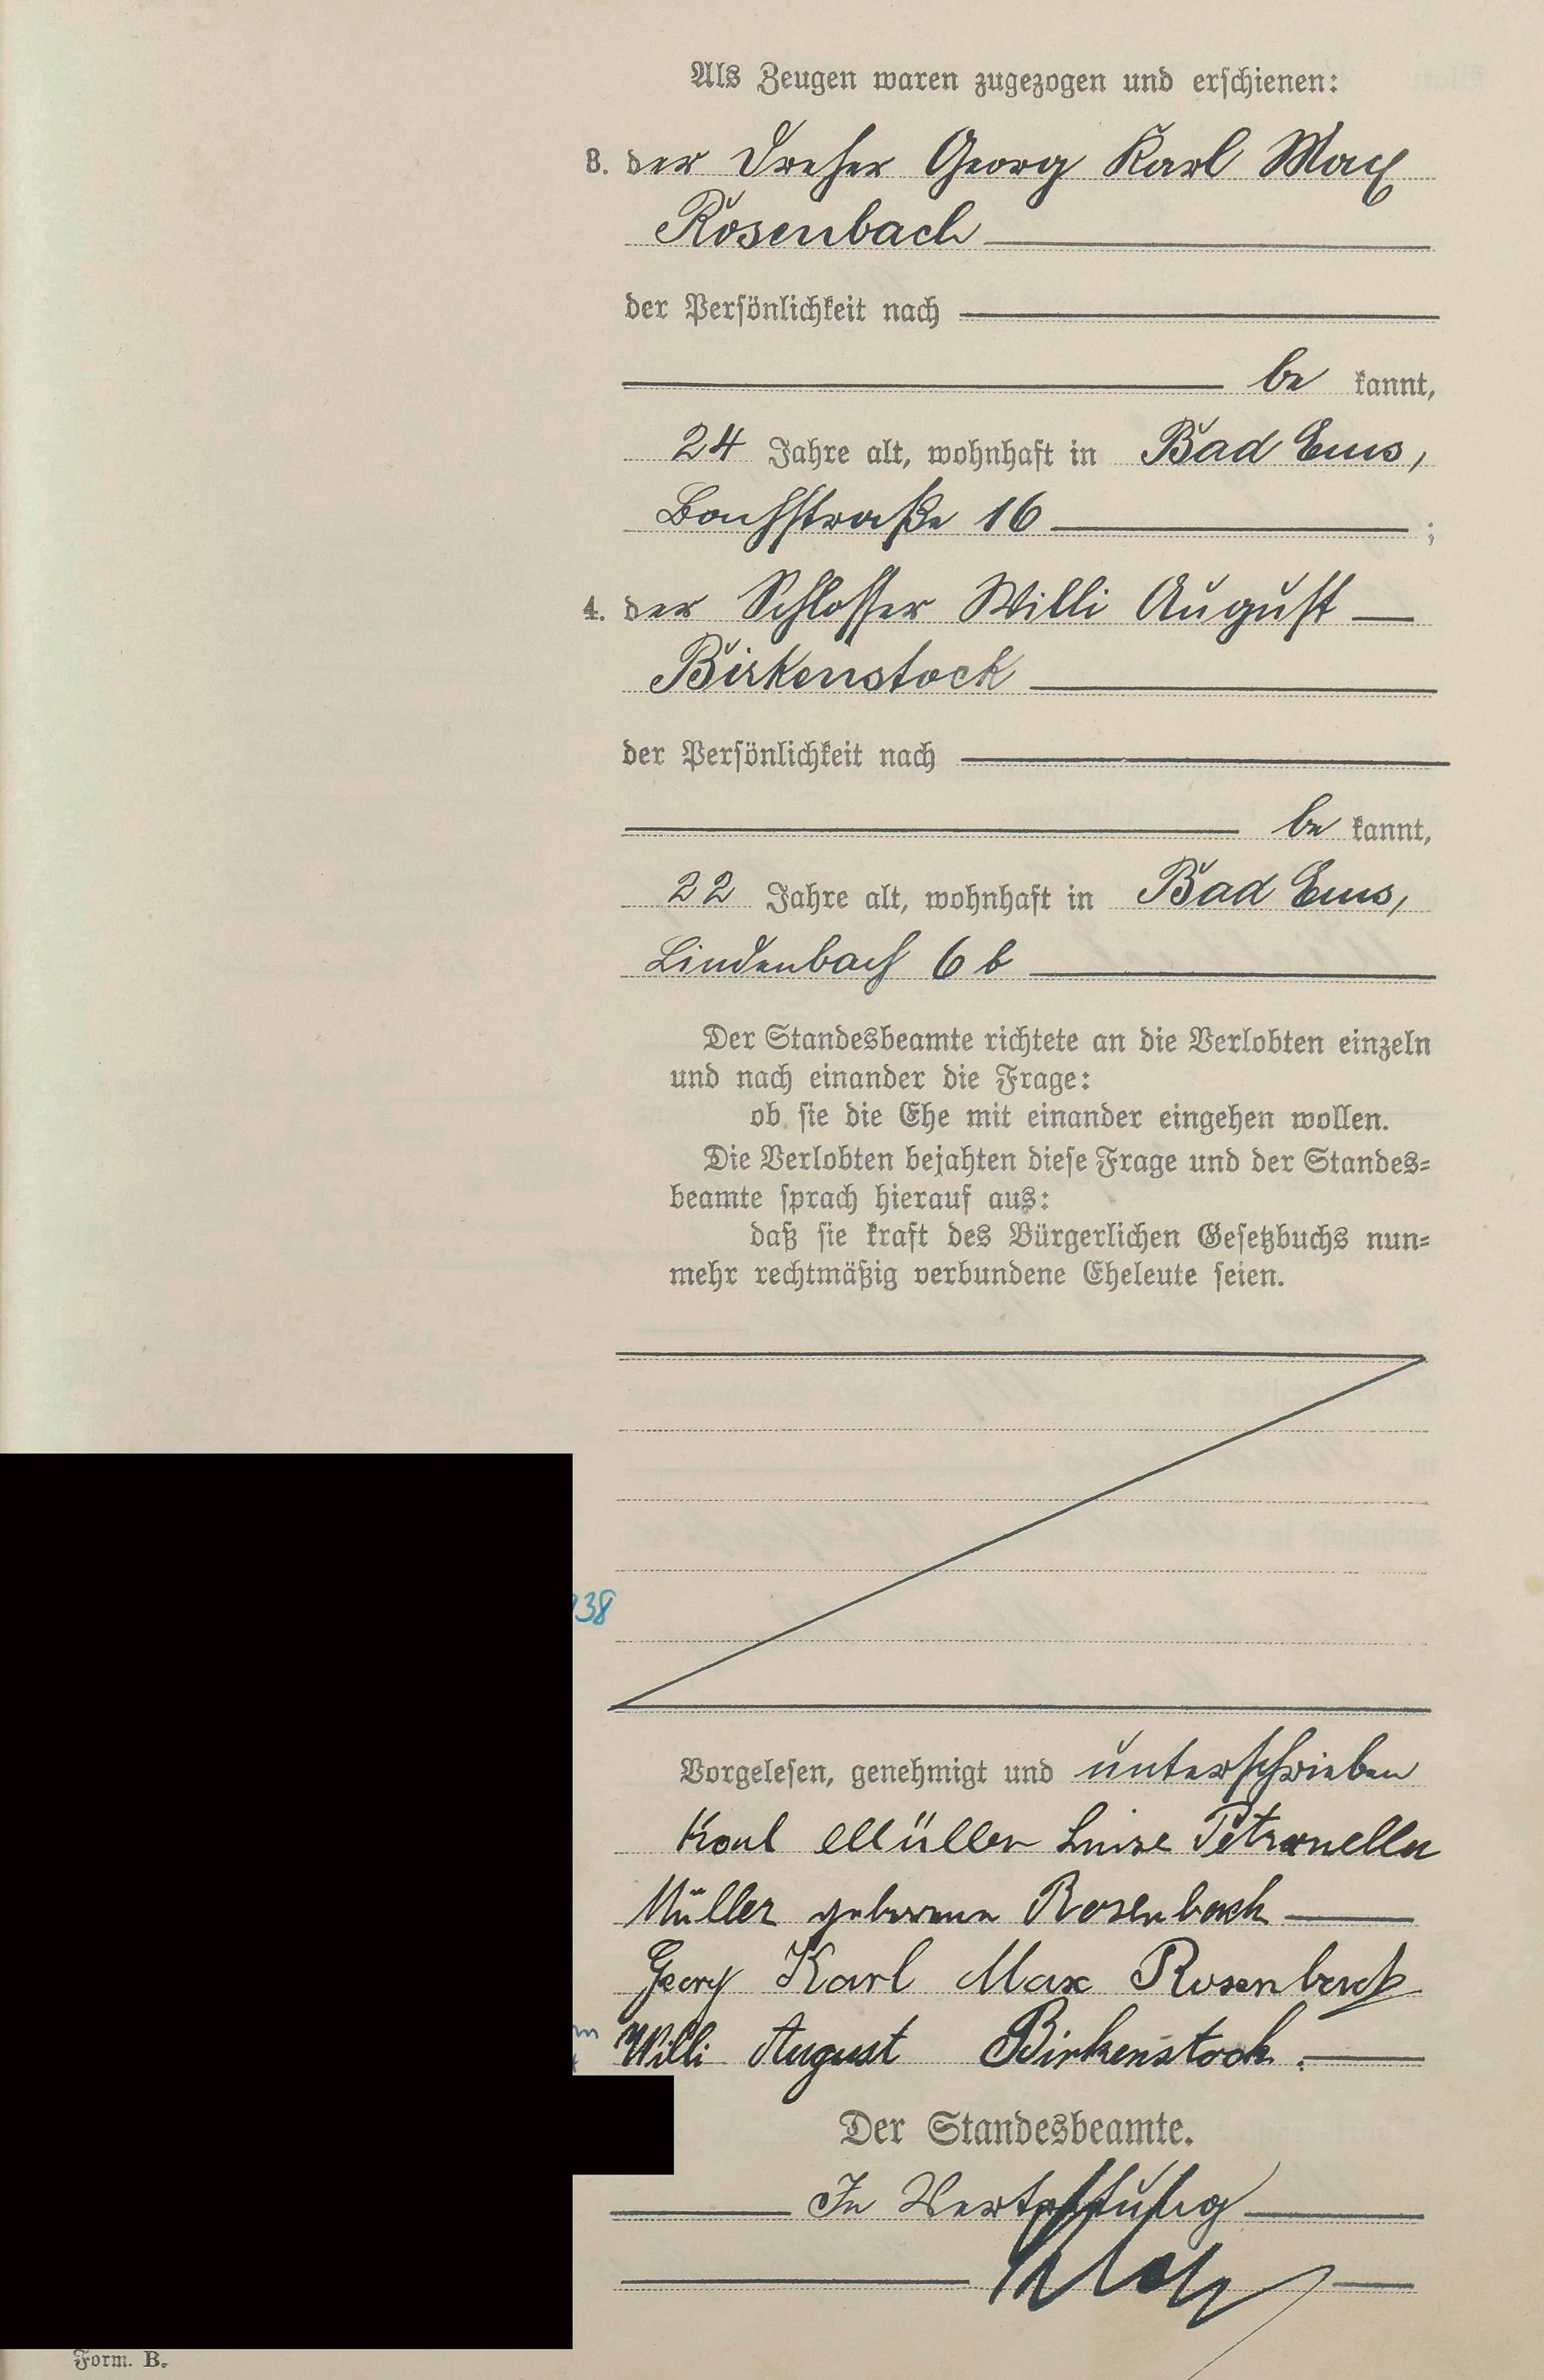 Als Zeugen waren zugezogen und erschienen:
3. der Dreher Georg Karl Max
Rosenbach
der Persönlichkeit nach
be kannt,
24 Jahre alt, wohnhaft in Bad Ems,
Bachstraße 16 ;
4. der Schlosser Willi August
Birkenstock
der Persönlichkeit nach
be kannt,
22 Jahre alt, wohnhaft in Bad Ems,
Lindenbach 6 b
Der Standesbeamte richtete an die Verlobten einzeln
und nach einander die Frage:
ob sie die Ehe mit einander eingehen wollen.
Die Verlobten bejahten diese Frage und der Standes=
beamte sprach hierauf aus:
daß sie kraft des Bürgerlichen Gesetzbuchs nun=
mehr rechtmäßig verbundene Eheleute seien.
38
Vorgelesen, genehmigt und unterschrieben
Karl Müller Luise Petronella
Müller geborene Rosenbach
Georg Karl Max Rosenbach
Willi August Birkenstock.
Der Standesbeamte.
In Vertretung
Form. B.